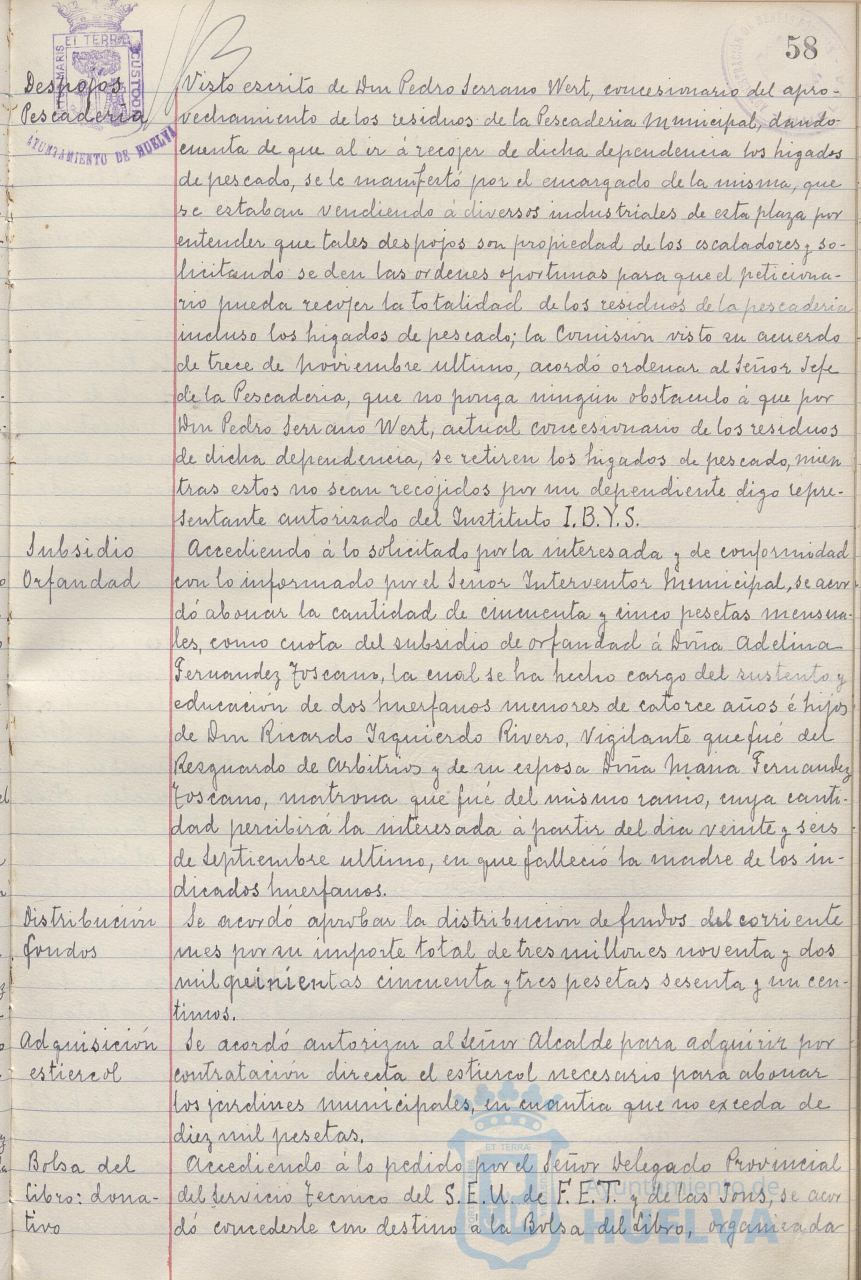 58
ET TERRÆ
MARIS
CUSTODI
AYUNTAMIENTO DE HUELVA
Despojos
Pescaderia
Visto escrito de Don Pedro Serrano Wert, concesionario del apro-
vechamiento de los residuos de la Pescaderia Municipal, dando
cuenta de que al ir á recojer de dicha dependencia los higados
de pescado, se le manifestó por el encargado de la misma, que
se estaban vendiendo á diversos industriales de esta plaza por
entender que tales despojos son propiedad de los escaladores y so-
licitando se den las ordenes oportunas para que el peticiona-
rio pueda recojer la totalidad de los residuos de la pescaderia
incluso los higados de pescado; la Comisión visto su acuerdo
de trece de noviembre ultimo, acordó ordenar al Señor Jefe
de la Pescaderia, que no ponga ningún obstaculo á que por
Don Pedro Serrano Wert, actual concesionario de los residuos
de dicha dependencia, se retiren los higados de pescado, mien
tras estos no sean recojidos por un dependiente digo repre-
sentante autorizado del Instituto I.B.Y.S.
Subsidio
Orfandad
Accediendo á lo solicitado por la interesada y de conformidad
con lo informado por el Señor Interventor Municipal, se acor-
dó abonar la cantidad de cincuenta y cinco pesetas mensua-
les, como cuota del subsidio de orfandad á Doña Adelina
Fernandez Toscano, la cual se ha hecho cargo del sustento y
educación de dos huerfanos menores de catorce años é hijos
de Don Ricardo Izquierdo Rivero, Vigilante que fué del
Resguardo de Arbitrios y de su esposa Doña Maria Fernandez
Toscano, matrona que fué del mismo ramo, cuya canti-
dad percibirá la interesada á partir del dia veinte y seis
de Septiembre ultimo, en que falleció la madre de los in-
dicados huerfanos.
Distribución
fondos
Se acordó aprobar la distribucion de fondos del corriente
mes por su importe total de tres millones noventa y dos
mil quinientas cincuenta y tres pesetas sesenta y un cen-
timos.
Adquisición
estiercol
Se acordó autorizar al Señor Alcalde para adquirir por
contratación directa el estiercol necesario para abonar
los jardines municipales, en cuantia que no exceda de
diez mil pesetas.
Bolsa del
Libro: dona-
tivo
Accediendo á lo pedido por el Señor Delegado Provincial
del Servicio Tecnico del S.E.U. de F.E.T. y de las Jons, se acor
dó concederle con destino á la Bolsa del Libro, organizada
ET TERRÆ
Ayuntamiento de
HUELVA